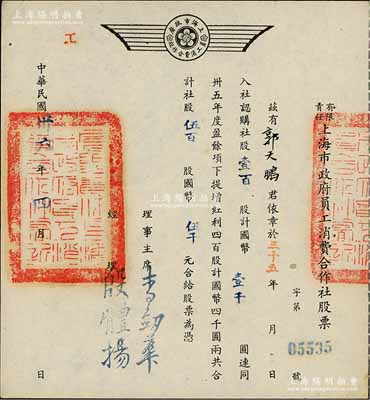 上海市政府
員工消費合作社
有限
責任
上海市政府員工消費合作社股票
字第
號
05535
茲有郭天鵬君依章於三十五年 月 日
入社認購社股壹百股計國幣壹千圓連同
卅五年度盈餘項下提增紅利四百股計國幣四千圓兩共合
計社股伍百股國幣伍千元合給股票為憑
理事主席
經理
段體揚
中華民國卅六年四月 日
工
上海陽明